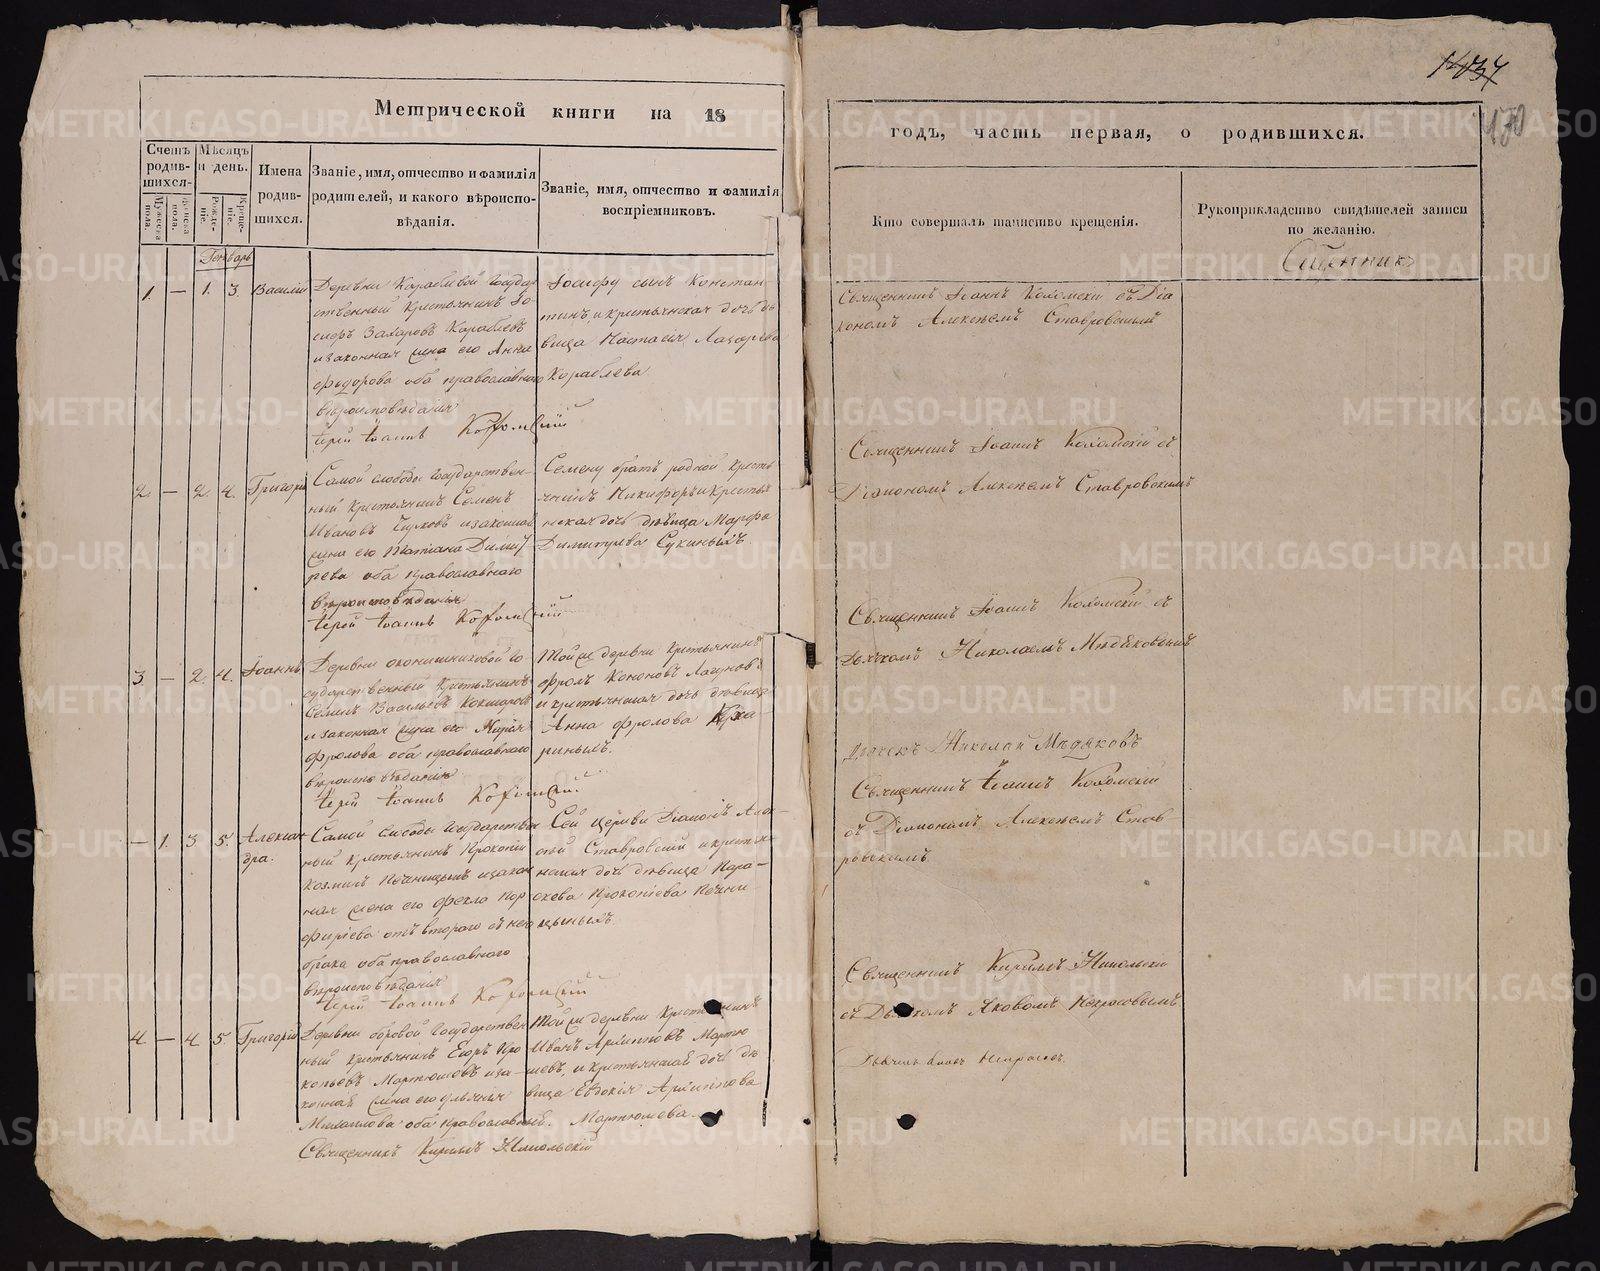 1434
470
Метрической книги на 18
годъ, часть первая, о родившихся.
Счетъ родив-шихся.
Мужеска пола.
Женска пола.
Мѣсяцъ и день.
Рожде-ніе.
Креще-ніе.
Имена родив-шихся.
Званіе, имя, отчество и фамилія
родителей, и какого вѣроиспо-
вѣданія.
Званіе, имя, отчество и фамилія
воспріемниковъ.
Кто совершалъ таинство крещенія.
Рукоприкладство свидѣтелей записи
по желанію.
Генварь
1. — 1. 3. Василій
Деревни Кораблевой Государ
ственный крестьянинъ Іо
сифъ Захаровъ Кораблевъ
и законная жена его Анна
Федорова оба православнаго
вѣроисповѣданія
Іерей Іоаннъ Коломскій
Іосифу сынъ Констан
тинъ, и крестьянская дочь дѣ
вица Настасія Лазарева
Кораблева.
Священникъ Іоаннъ Коломскій съ Діа
кономъ Алексѣемъ Ставровскимъ
2. — 2. 4. Григорій
Самой слободы Государствен-
ный крестьянинъ Семенъ
Ивановъ и законная
жена его Татіана Димит
рева оба православнаго
вѣроисповѣданія
Іерей Іоаннъ Коломскій
Семену братъ родной кресть
янинъ Никифоръ и кресть
янская дочь дѣвица Марфа
Димитрева Сукиныхъ
Священникъ Іоаннъ Коломскій съ
Діакономъ Алексѣемъ Ставровскимъ
3 — 2. 4. Іоаннъ
Деревни Го
сударственный крестьянинъ
Семенъ Васильевъ Кокшаровъ
и законная жена его Марія
Фролова оба православнаго
вѣроисповѣданія
Іерей Іоаннъ Коломскій
Той же деревни крестьянинъ
Фролъ Кононовъ
и крестьянская дочь дѣвица
Анна Фролова
Священникъ Іоаннъ Коломскій съ
Дьячкомъ Николаемъ Мѣдяковымъ
Дьячекъ Николай Мѣдяковъ
— 1. 3 5. Алексан
дра.
Самой слободы Государствен
ный крестьянинъ Прокопій
Козминъ Печницынъ и закон
ная жена его Фекла Пор
фиріева отъ втораго съ нею
брака оба православнаго
вѣроисповѣданія
Іерей Іоаннъ Коломскій
Сей церкви Діаконъ Алек-
сѣй Ставровскій и крестья
нская дочь дѣвица Пара-
скева Прокопіева Печни
цыныхъ
Священникъ Іоаннъ Коломскій
съ Діакономъ Алексѣемъ Став-
ровскимъ.
4 — 4 5 Григорій
Деревни Боровой Государствен
ный крестьянинъ Егоръ Про
копьевъ Мартюшевъ и за-
конная жена его Ульянія
Михаилова оба православные.
Священникъ Кирилъ Никольскій
Той же деревни Крестьянинъ
Иванъ Архиповъ Мартю
шевъ, и крестьянская дочь дѣ
вица Евдокія Архипова
Мартюшева.
Священникъ Кирилъ Никольскій
съ Дьячкомъ Яковомъ Некрасовымъ